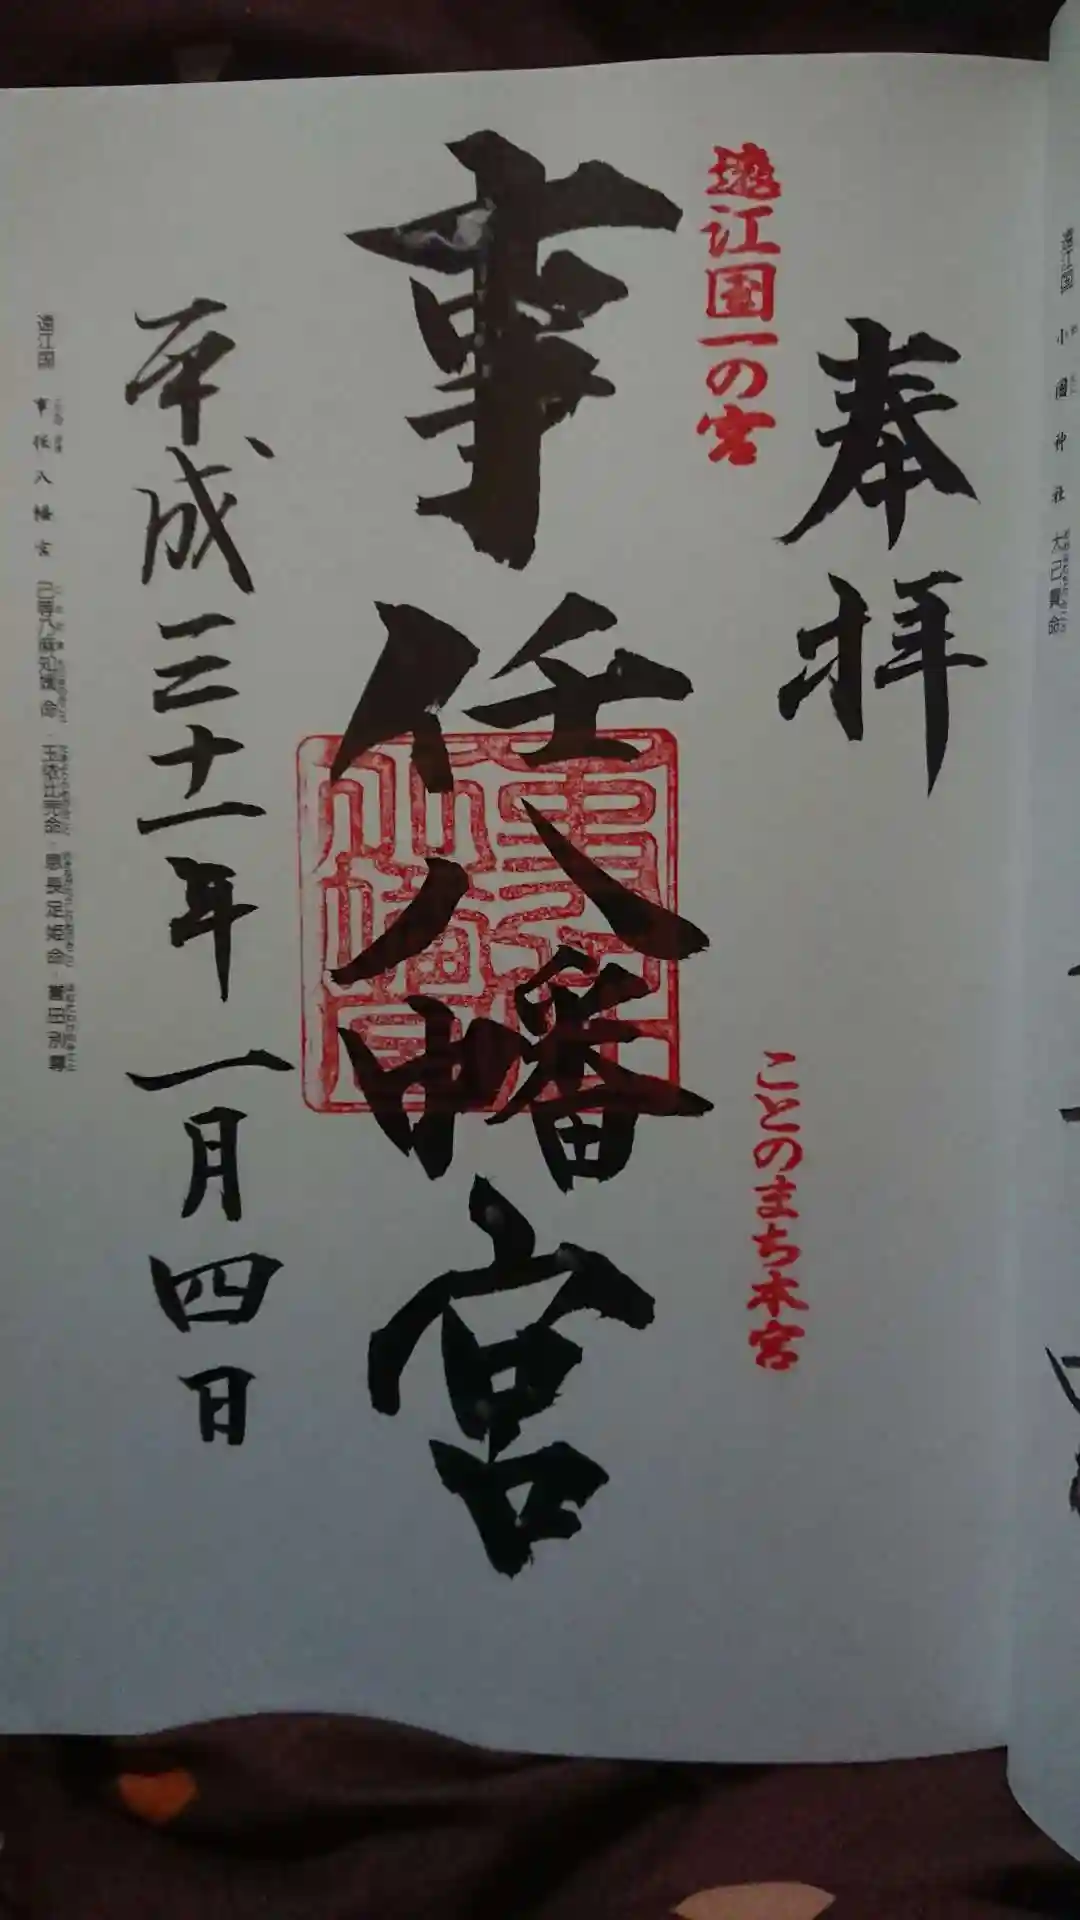 遠江国 小國神社 大己貴命
奉拝
遠江国一の宮
ことのまち本宮
事任八幡宮
平成三十一年一月四日
遠江国 事任八幡宮 己等乃麻知媛命・玉依比売命・息長足姫命・誉田別尊